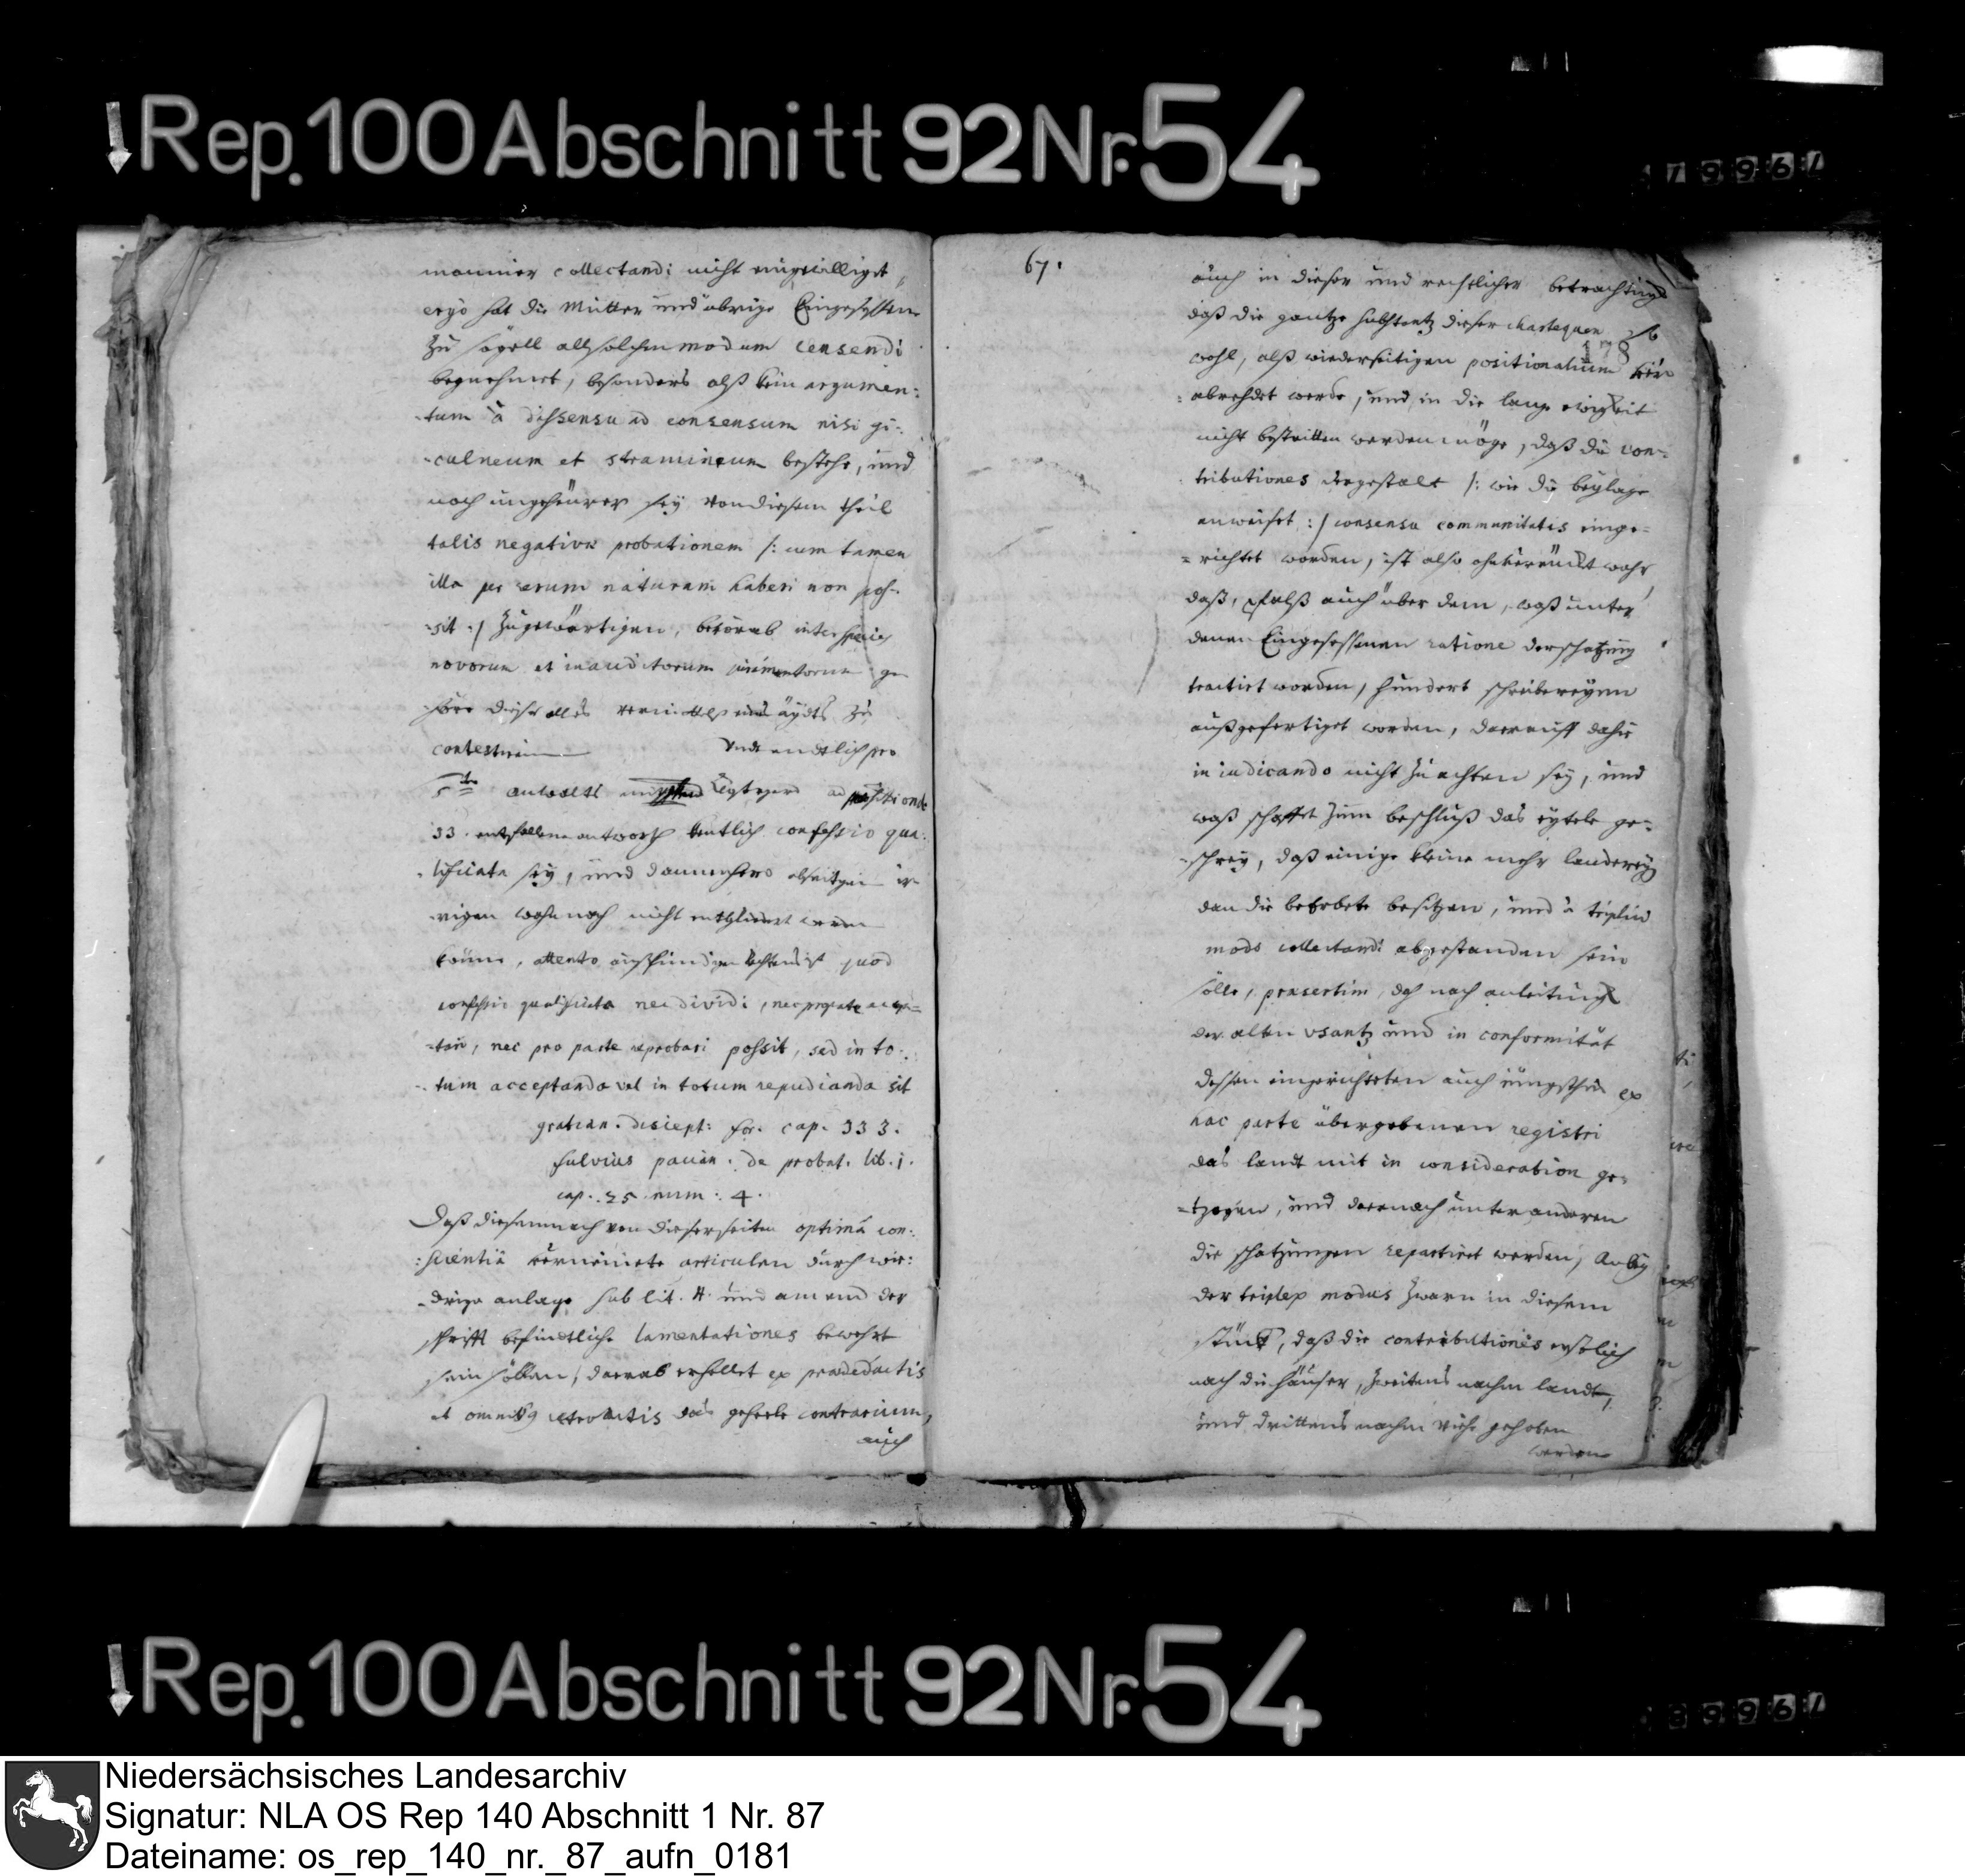 Rep. 100 Abschnitt 92 Nr. 54
manier collectandi nicht eingewilliget,
ergo hat die Mutter und übrige Eingesessene
zu Sögell alsolchen modum censendi
begnehmet, besonders alß kein argumen:
-tum à dissensu ad consensum nisi gi-:
-culneum et stramineum bestehe, und
noch ungeheurer sey von diesem theil
talis negativæ probationem /: cum tamen
illa per rerum naturam haberi non pos-:
-sit :/ zugewärtigen, bevorab inter species
novorum et inauditorum ge
-höre dieses alles vermittels eines äydts zu
Undt endtlich pro
5to
33. antwort kentlich confessio qua:
-lificata sey, und dannenhero ir-
-rigen wohn noch nicht werden
könne, attento quod
confessio qualificata nec dividi, nec pro parte accep=
-tari, nec pro parte reprobari possit, sed in to-:
-tum acceptanda vel in totum repudianda sit
gratian. discept: for. cap. 333.
fulvius pacian. de probat. lib. 1.
cap. 25 num: 4.
Daß diesemnach von dieser seiten optimâ con:
:scientiâ verneinete articulen durch wie:
-drige anlage sub lit. A. und am end der
schrifft befindtliche lamentationes bewehrt
sein sollen, darab erhellet ex prædeductis
et omnibus das contrarium,
auch
67.
auch in dieser und rechtlicher betrachtung
daß die gantze substantz dieser chartequen so
wohl, alß wiederseitigen positionalium
abredet werde, und in die lange ewigkeit
nicht bestritten werden möge, daß die con-:
tributiones dergestalt /: wie die beylage
anweiset :/ consensu communitatis einge=
=richtet worden, ist also wahr
daß, falß auch über dem, waß unter
denen Eingesessenen ratione der schatzung
tractirt worden, hundert schreibereyen
außgefertiget worden, darauff dahie
in iudicando nicht zu achten sey, und
waß schaffet zum beschluß das eytele ge-:
-schrey, daß einige kleine mehr landerey
dan die beerbete besitzen, und à triplici
modo collectandi abgestanden sein
solle, præsertim, da nach anleitung
der alten usantz und in conformität
dessen eingerichteten auch jüngsthin ex
hac parte übergebenen registri
das landt mit in consideration ge-
=tzogen, und darnach unter anderen
die schatzungen repartiret werden,
der triplex modus zwarn in diesem
stück, daß die contributiones erstlich
nach die häuser, zweitens nachm landt,
und drittens nachm viehe gehoben
werden
Rep. 100 Abschnitt 92 Nr. 54
Niedersächsisches Landesarchiv
Signatur: NLA OS Rep 140 Abschnitt 1 Nr. 87
Dateiname: os_rep_140_nr._87_aufn_0181